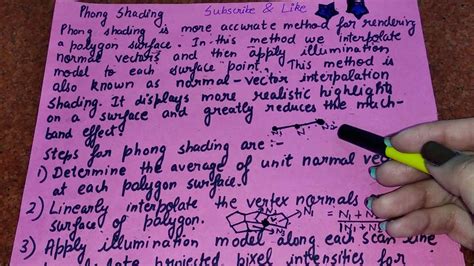 Phong Shading Subscribe & Like
Phong shading is more accurate method for rendering
a polygon surface. In this method we interpolate
normal vectors and then apply illumination
model to each surface point. This method is
also known as normal-vector interpolation
shading. It displays more realistic highlights
on a surface and greatly reduces the mach-
band effect
Steps for phong shading are:-
1) Determine the average of unit normal
at each polygon surface.
2) Linearly interpolate the vertex normals
surface of polygon.
3) Apply illumination model along each scan line
projected pixel intensities for